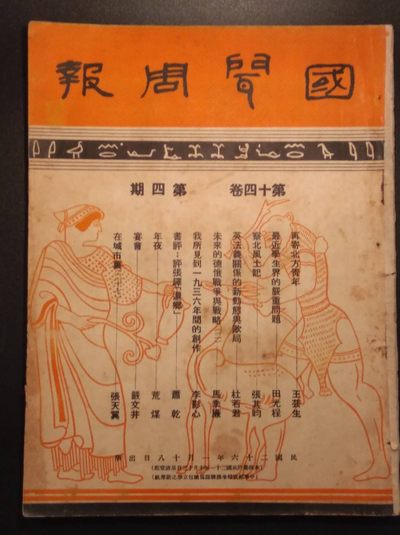 國聞周報
第十四卷 第四期
再寄北方青年 王芸生
最近學生界的嚴重問題
察北風土記
英法義關係的新動態與歐局 杜若君
未來的德俄戰爭與戰略
我所見到一九三六年間的創作 李影心
書評：評張譯「還鄉」 蕭乾
年夜 荒煤
宴會 嚴文井
在城市裏 張天翼
民國二十六年一月十八日出版